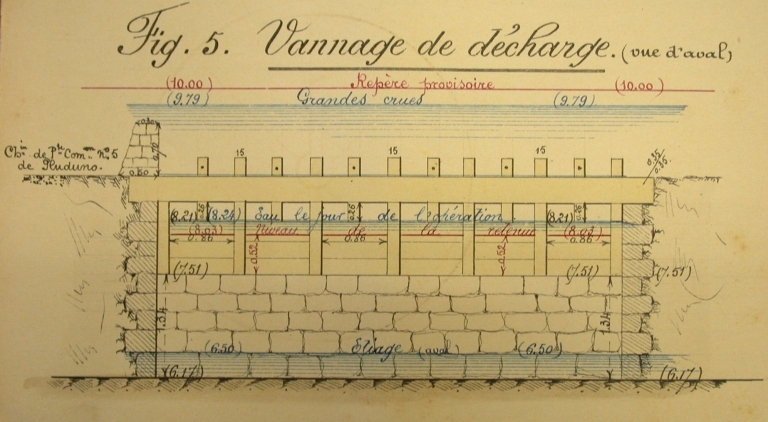 Fig. 5. Vannage de décharge. (vue d'aval)
(10.00) Repère provisoire (10.00)
(9.79) Grandes crues (9.79)
Ch.in de G.de Com.on N.o 5
de Pluduno.
0.70
0.50
15 15 15
0.35/0.35
0.26 0.26 0.26
(8.21) (8.24) Eau le jour de l'opération (8.21)
(8.03) Niveau de la retenue (8.03)
0.86 0.86 0.86
0.52 0.52
(7.51) (7.51) (7.51)
1.34 1.34
(6.50) Etiage (aval) (6.50)
(6.17) (6.17)